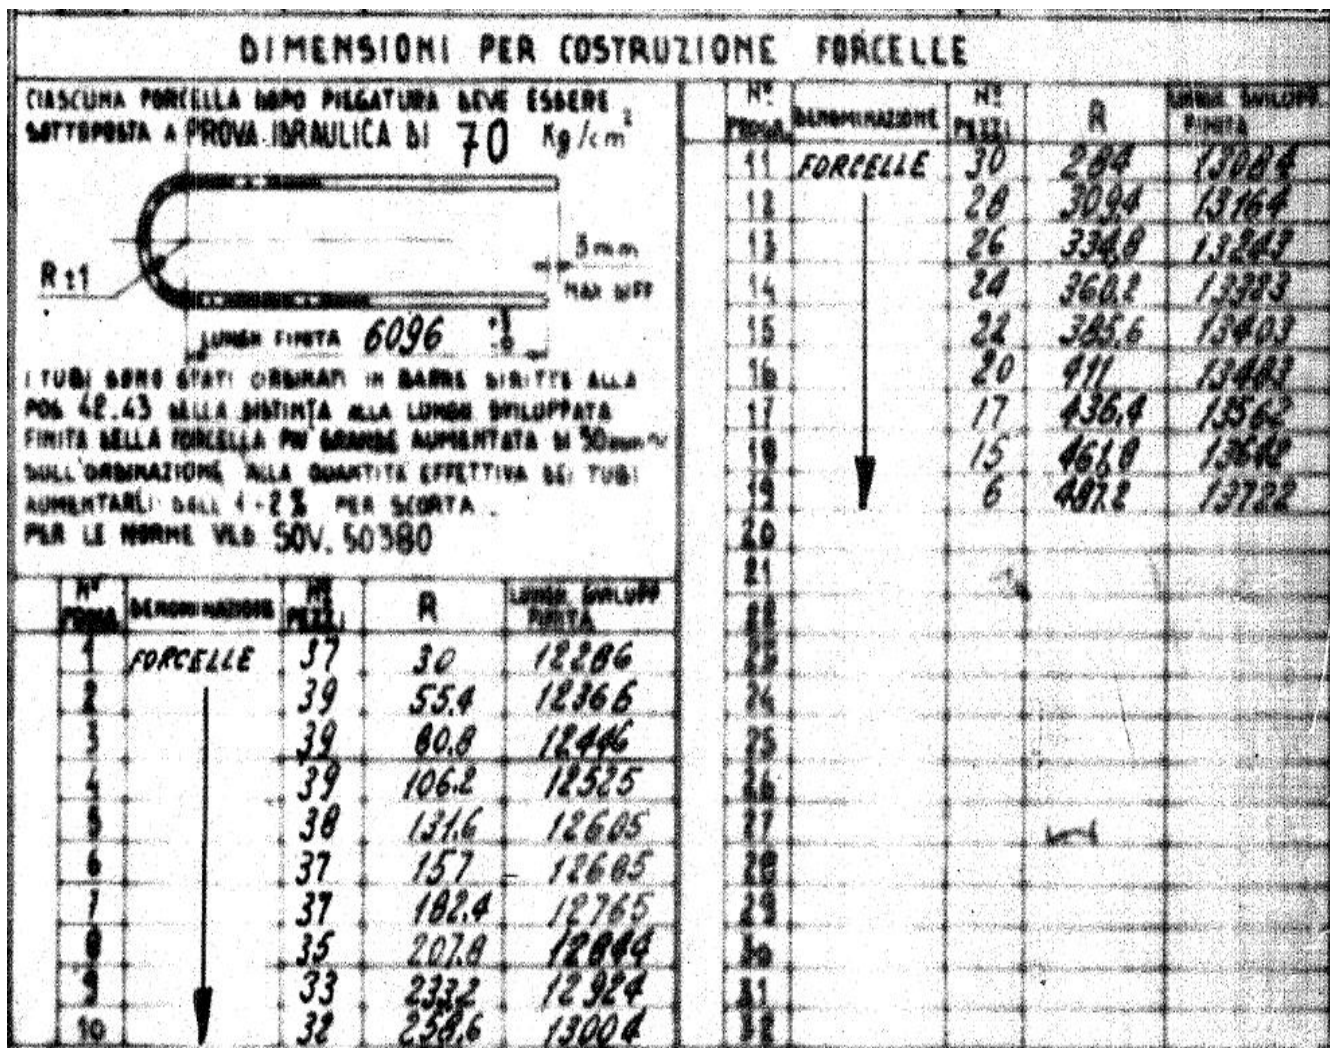 DIMENSIONI PER COSTRUZIONE FORCELLE
CIASCUNA FORCELLA DOPO PIEGATURA DEVE ESSERE
SOTTOPOSTA A PROVA IDRAULICA DI 70 Kg/cm²
R ±1
5 mm
MAX DIFF
LUNGH FINITA 6096
I TUBI SONO STATI ORDINATI IN BARRE DIRITTE ALLA
POS 42.43 DELLA DISTINTA ALLA LUNGH SVILUPPATA
FINITA DELLA FORCELLA PIU GRANDE AUMENTATA DI 50mm
SULL'ORDINAZIONE ALLA QUANTITA EFFETTIVA DEI TUBI
AUMENTARLI DELL 1-2% PER SCORTA
PER LE NORME VED. SOV. 50380
N° PROGR. DENOMINAZIONE N° PEZZI R LUNGH. SVILUPP. FINITA
1 FORCELLE 37 30 12286
2 39 55.4 12366
3 39 80.8 12446
4 39 106.2 12525
5 38 131.6 12605
6 37 157 12685
7 37 182.4 12765
8 35 207.8 12844
9 33 233.2 12924
10 32 258.6 13004
N° PROGR. DENOMINAZIONE N° PEZZI R LUNGH. SVILUPP. FINITA
11 FORCELLE 30 284 13084
12 28 309.4 13164
13 26 334.8 13243
14 24 360.2 13323
15 22 385.6 13403
16 20 411 13483
17 17 436.4 13562
18 15 461.8 13642
19 6 487.2 13722
20
21
22
23
24
25
26
27
28
29
30
31
32